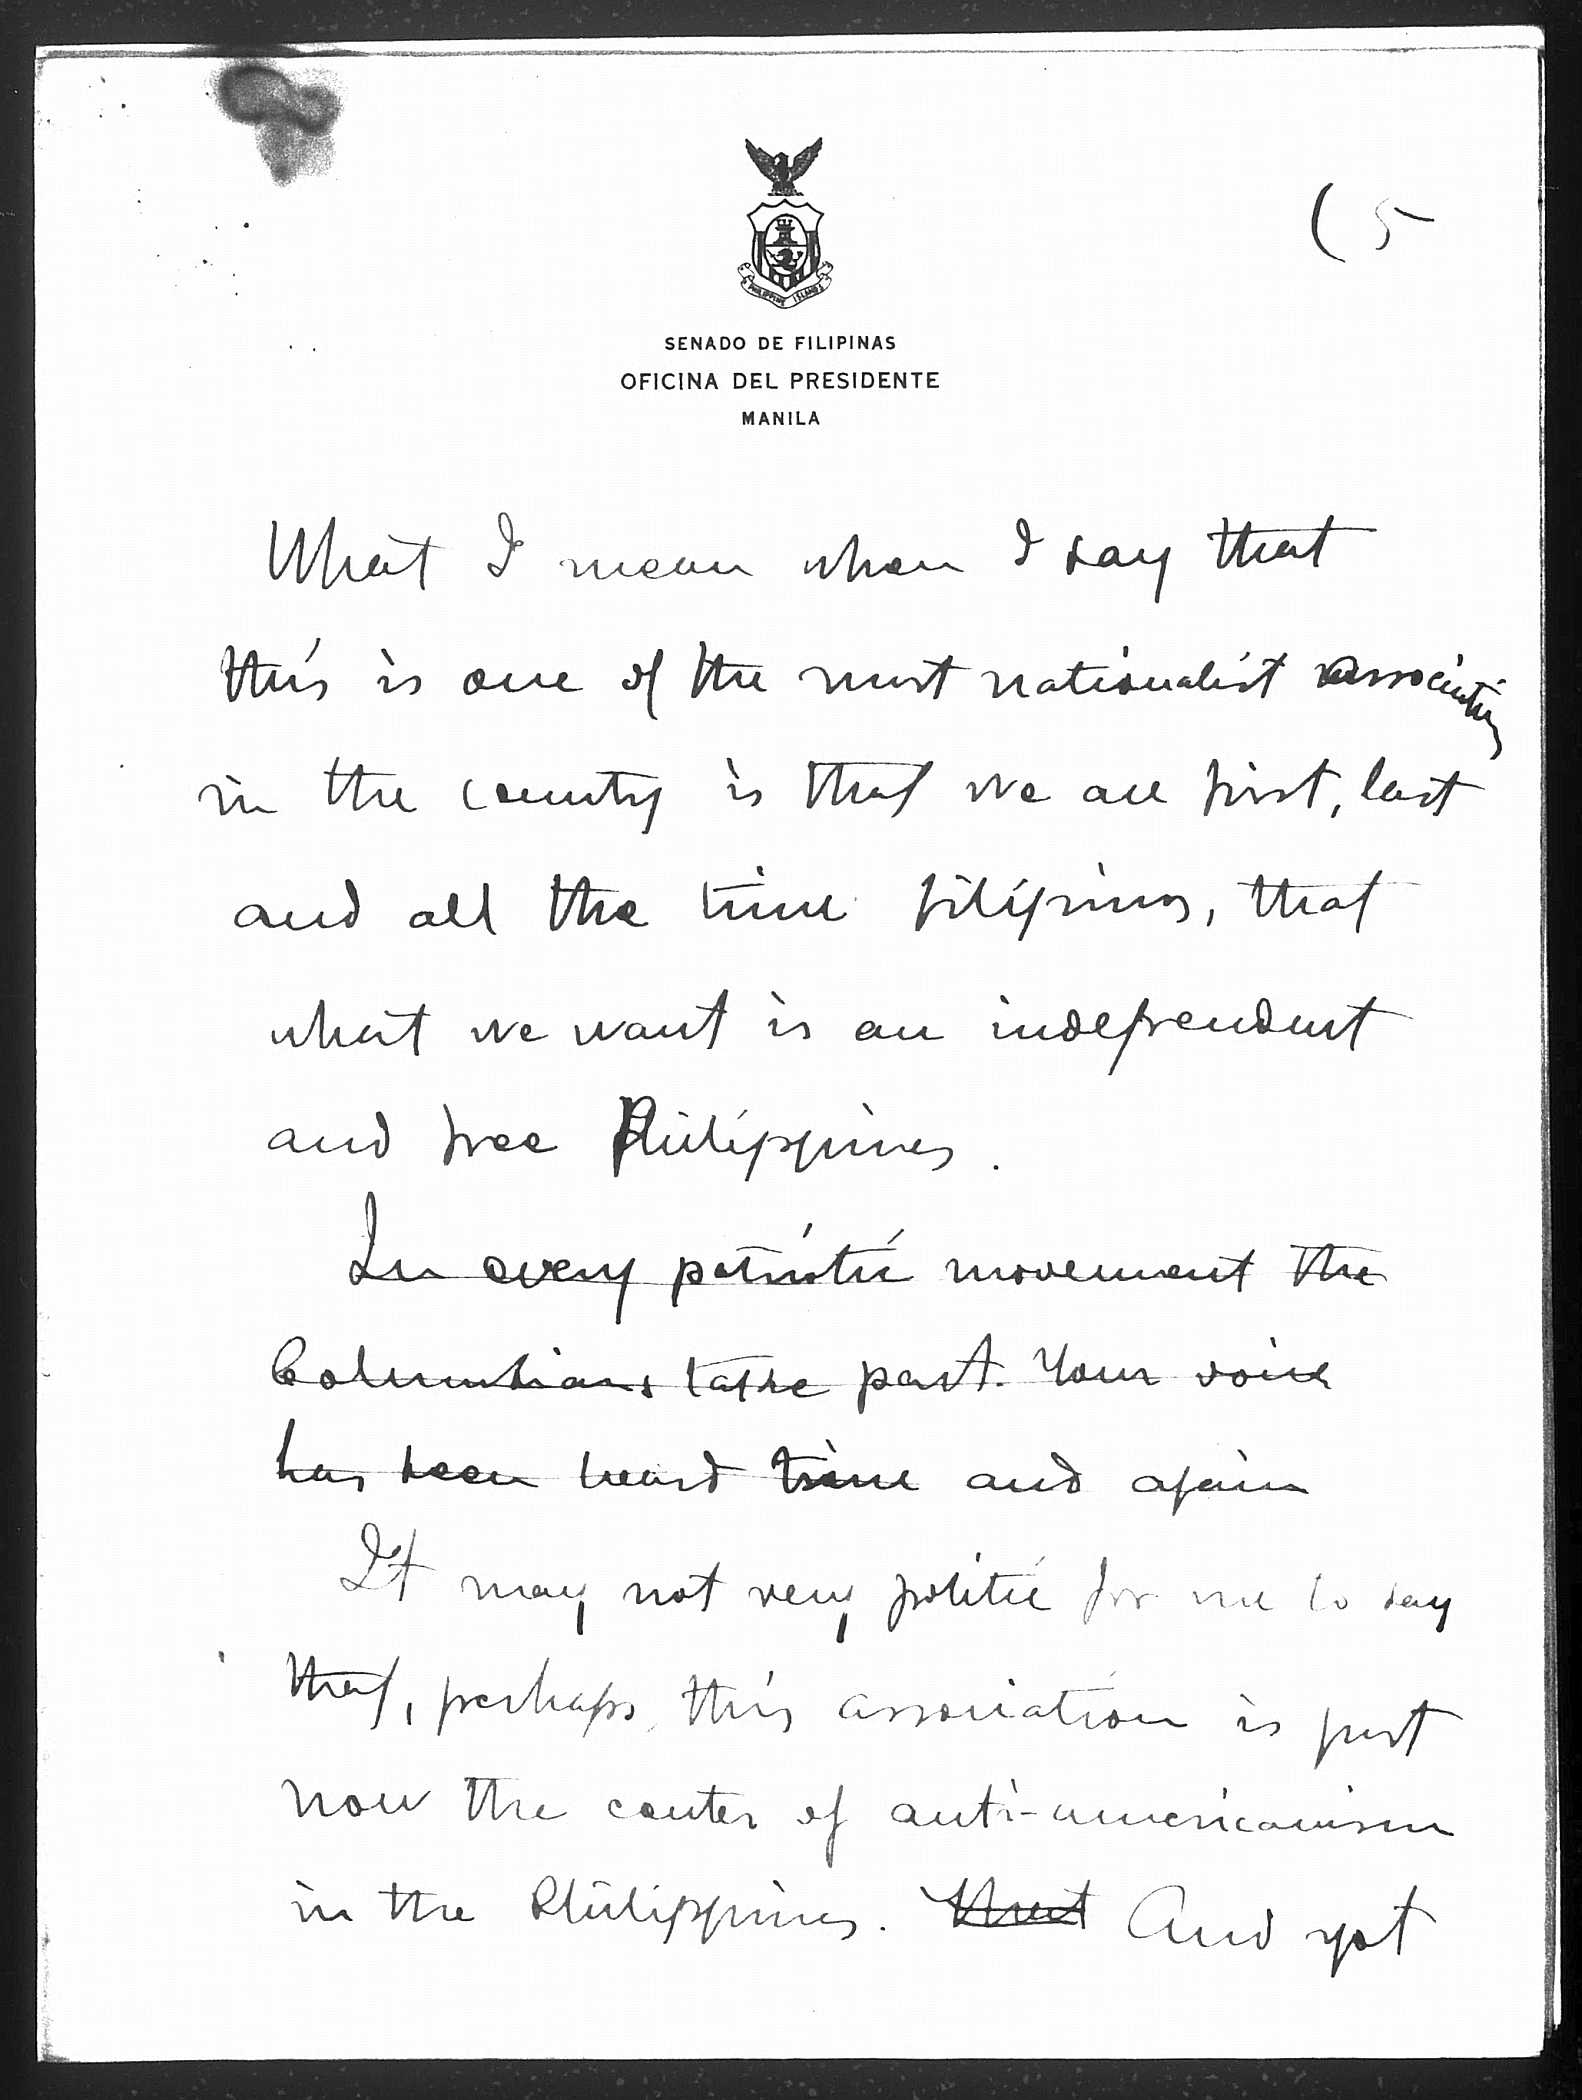 ( 5
PHILIPPINE ISLANDS
SENADO DE FILIPINAS
OFICINA DEL PRESIDENTE
MANILA
What I mean when I say that
this is one of the most nationalist association
in the country is that we are first, last
and all the time filipinos, that
what we want is an independent
and free Philippines.
In every patriotic movement the
Columbians take part. Your voice
has been heard time and again
It may not very politic for me to say
that, perhaps, this association is just
now the center of anti-americanism
in the Philippines. And yet